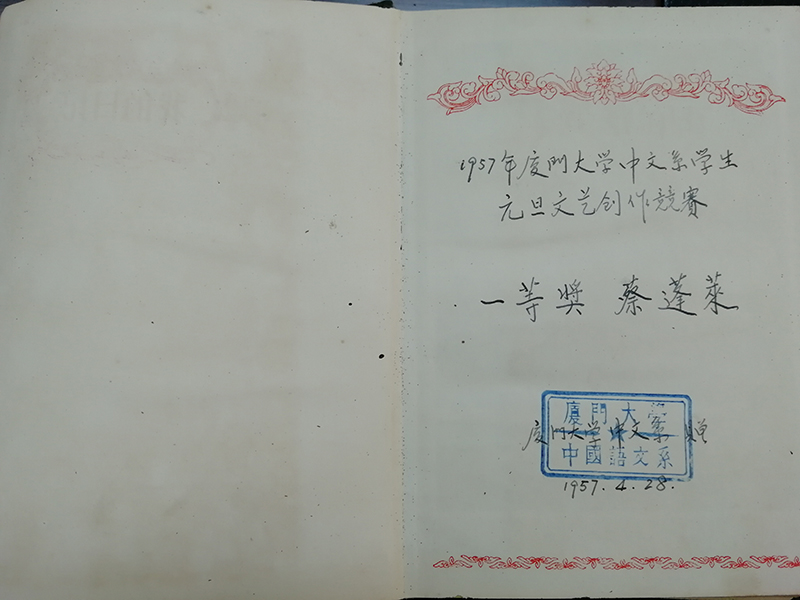 1957年厦門大学中文系学生
元旦文艺创作競賽
一等奬 蔡蓬萊
廈門大學
厦門大学中文系 贈
中國語文系
1957.4.28.